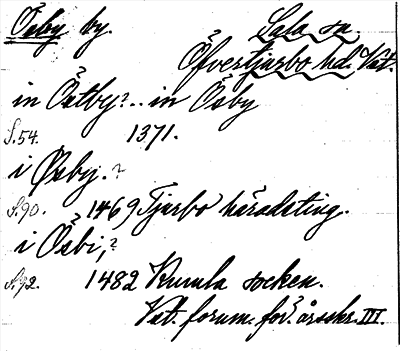 Ösby by.
Sala sn.
Öfvertjurbo hd. Vst.
in Östby?.. in Ösby
S.54. 1371.
i Øsby.?
S.90. 1469 Tjurbo häradsting.
i Ösbi,?
S.92. 1482 Kumla socken.
Vst. fornm. för? årsskr. III.